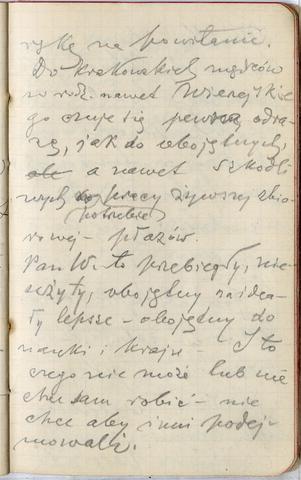 rykę na powitanie.
Do krakowskich mędrców
w rodz. nawet Wierzejskie
go czuje się pewną odra-
zę, jak do obojętnych,
a nawet szkodli
wych do pracy żywszej zbio-
potrzebnej
rowej - płazów.
Pan W. to przebiegły, nie-
użyty, obojętny na idea-
ły lepsze - obojętny do
nauki i kraju - I to
czego nie może lub nie
chce sam robić - nie
chce aby inni podej-
mowali.